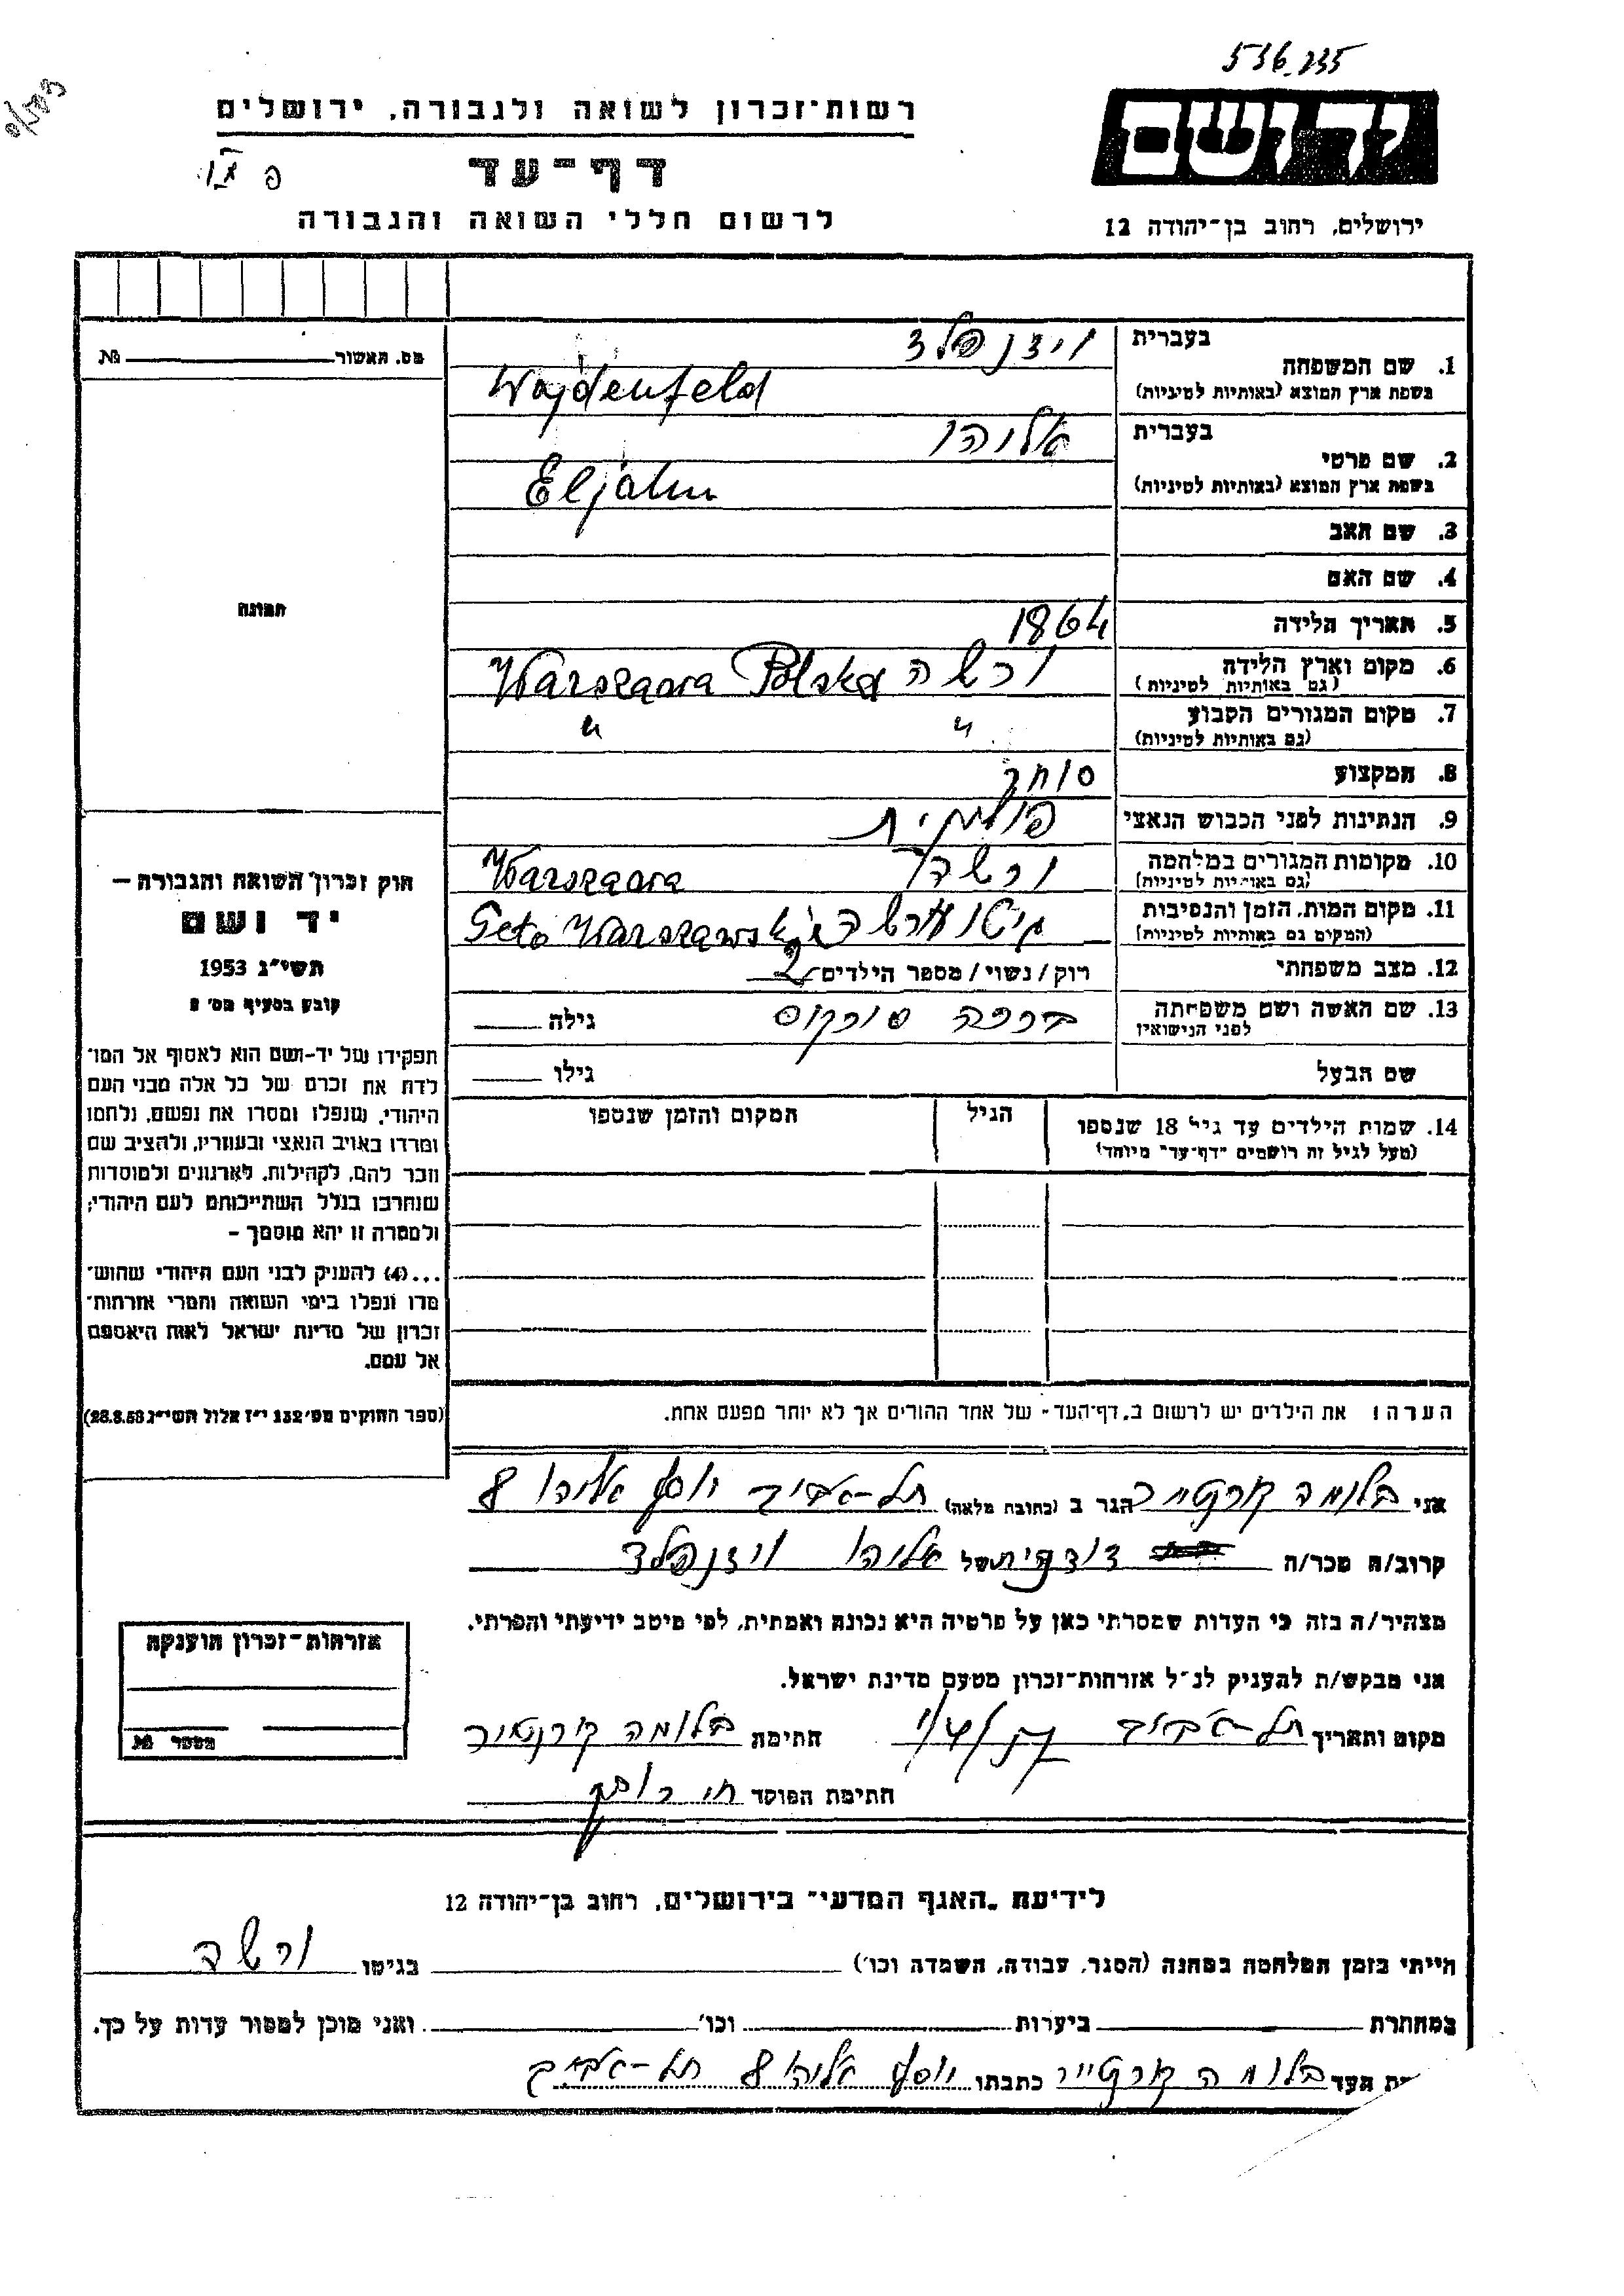 536.235
רשות־זכרון לשואה ולגבורה, ירושלים
דף־עד
לרשום חללי השואה והגבורה
יד ושם
ירושלים, רחוב בן־יהודה 12
מס. תאשור № 
1. שם המשפחה
בעברית ויזנפלד
בשפת ארץ המוצא (באותיות לטיניות) Wajdenfeld
2. שם פרטי
בעברית אליהו
בשפת ארץ המוצא (באותיות לטיניות) Eljahu
3. שם האב
4. שם האם
5. תאריך הלידה 1864
6. מקום וארץ הלידה (גם באותיות לטיניות) ורשה Warszawa Polska
7. מקום המגורים הקבוע (גם באותיות לטיניות) " "
8. המקצוע סוחר
9. הנתינות לפני הכבוש הנאצי פולנית
10. מקומות המגורים במלחמה (גם באותיות לטיניות) ורשה Warszawa
11. מקום המות, הזמן והנסיבות (המקום גם באותיות לטיניות) גיטו ורשה Geto Warszawski
12. מצב משפחתי רוק/נשוי/מספר הילדים 2
13. שם האשה ושם משפחתה לפני הנישואין ברכה גילה
שם הבעל גילו
14. שמות הילדים עד גיל 18 שנספו
(מעל לגיל זה רושמים "דף־עד" מיוחד)
הגיל
המקום והזמן שנספו
תמונה
חוק זכרון השואה והגבורה —
יד ושם
תשי"ג 1953
קובע בסעיף מס' 2
תפקידו של יד־ושם הוא לאסוף אל המו־
לדת את זכרם של כל אלה מבני העם
היהודי, שנפלו ומסרו את נפשם, נלחמו
ומרדו באויב הנאצי ובעוזריו, ולהציב שם
וזכר להם, לקהילות, לארגונים ולמוסדות
שנחרבו בגלל השתייכותם לעם היהודי;
ולמטרה זו יהא מוסמך –
...(4) להעניק לבני העם היהודי שהוש־
מדו ונפלו בימי השואה והמרי אזרחות־
זכרון של מדינת ישראל לאות היאספם
אל עמם.
(ספר החוקים מס' 132 י"ז אלול תשי"ג 28.8.53)
הערה: את הילדים יש לרשום ב„דף־העד" של אחד ההורים אך לא יותר מפעם אחת.
אני בלומה קורקטייר הגר ב (כתובת מלאה) תל־אביב יוסף אליהו 8
קרוב/ה מכר/ה של אליהו ויזנפלד
מצהיר/ה בזה כי העדות שמסרתי כאן על פרטיה היא נכונה ואמתית, לפי מיטב ידיעתי והכרתי.
אני מבקש/ת להעניק לנ"ל אזרחות־זכרון מטעם מדינת ישראל.
מקום ותאריך תל־אביב חתימת בלומה
חתימת הפוקד
אזרחות־זכרון הוענקה
מספר №
לידיעת „האגף המדעי" בירושלים, רחוב בן־יהודה 12
הייתי בזמן המלחמה במחנה (הסגר, עבודה, השמדה וכו') בגיטו ורשה
במחתרת ביערות וכו' ואני מוכן למסור עדות על כך.
ת העד בלומה קורקטייר כתבתו יוסף אליהו 8 תל־אביב